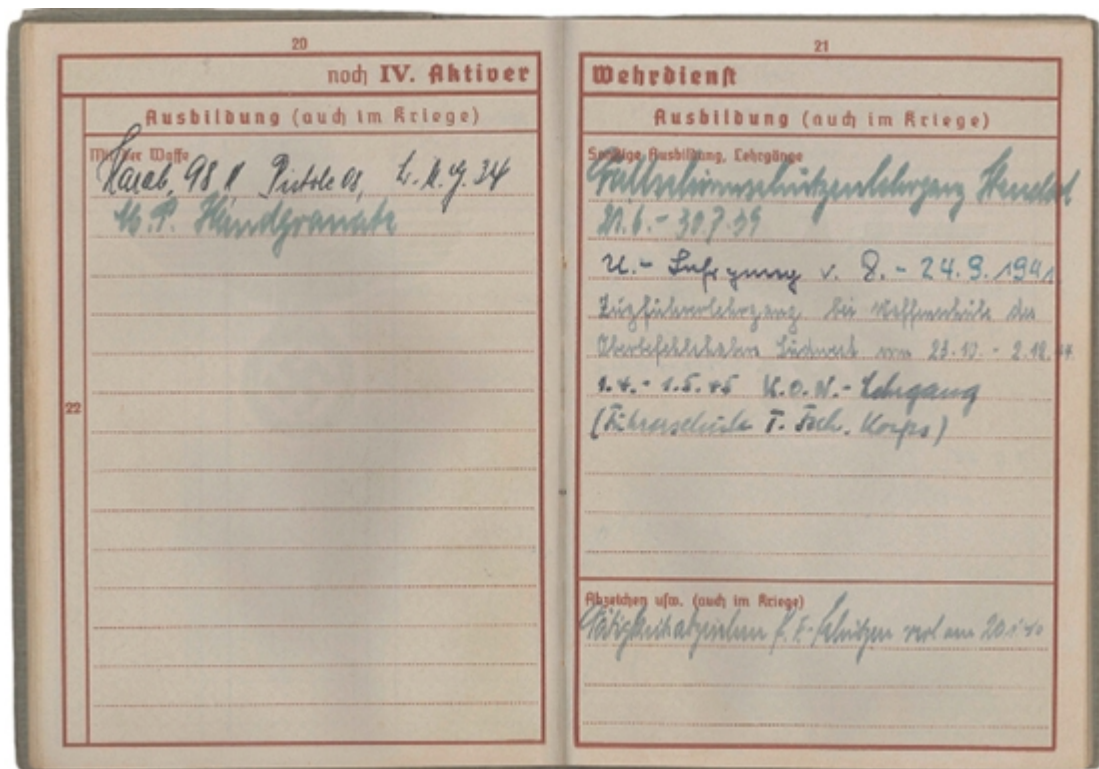 20
noch IV. Aktiver
Ausbildung (auch im Kriege)
Mit der Waffe
Karab. 98 K Pistole 08, L.M.G. 34
M.P. Handgranate
22
21
Wehrdienst
Ausbildung (auch im Kriege)
Sonstige Ausbildung, Lehrgänge
Fallschirmschützenlehrgang Stendal
- 30.7.39
U.- Lehrgang v. 8. - 24.9.1941
Zugführerlehrgang bei Waffenschule des
Oberbefehlshabers Südwest vom 23.10. -
1.4. - 1.5.45 K.O.N.- Lehrgang
(Führerschule I. Fsch. Korps)
Abzeichen usw. (auch im Kriege)
Tätigkeitabzeichen f. F.-Schützen verl. am